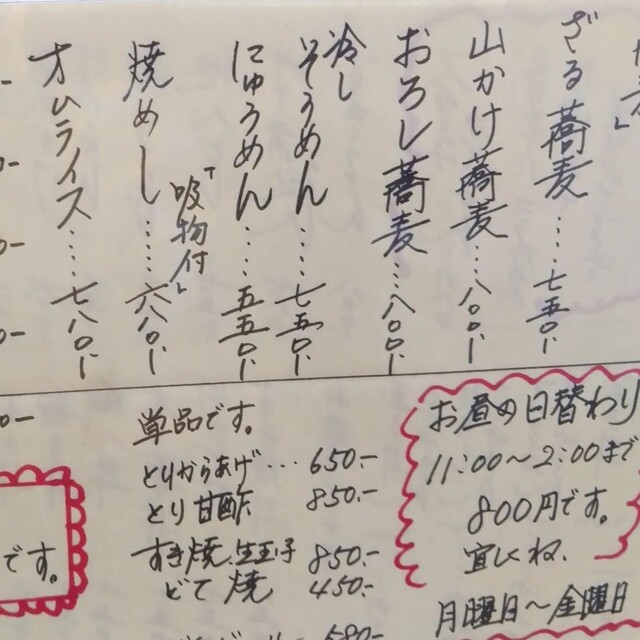 ざる蕎麦……七五〇-
山かけ蕎麦……八〇〇-
おろし蕎麦……八〇〇-
冷し
そうめん……七五〇-
にゅうめん……五五〇-
「吸物付」
焼めし……六八〇-
オムライス……七八〇-
単品です。
とりからあげ…650.-
とり甘酢 850.-
すき焼、生玉子 850.-
どて焼 450.-
680.-
お昼の日替わり
11:00～2:00まで
800円です。
宜しくね、
月曜日～金曜日
です。